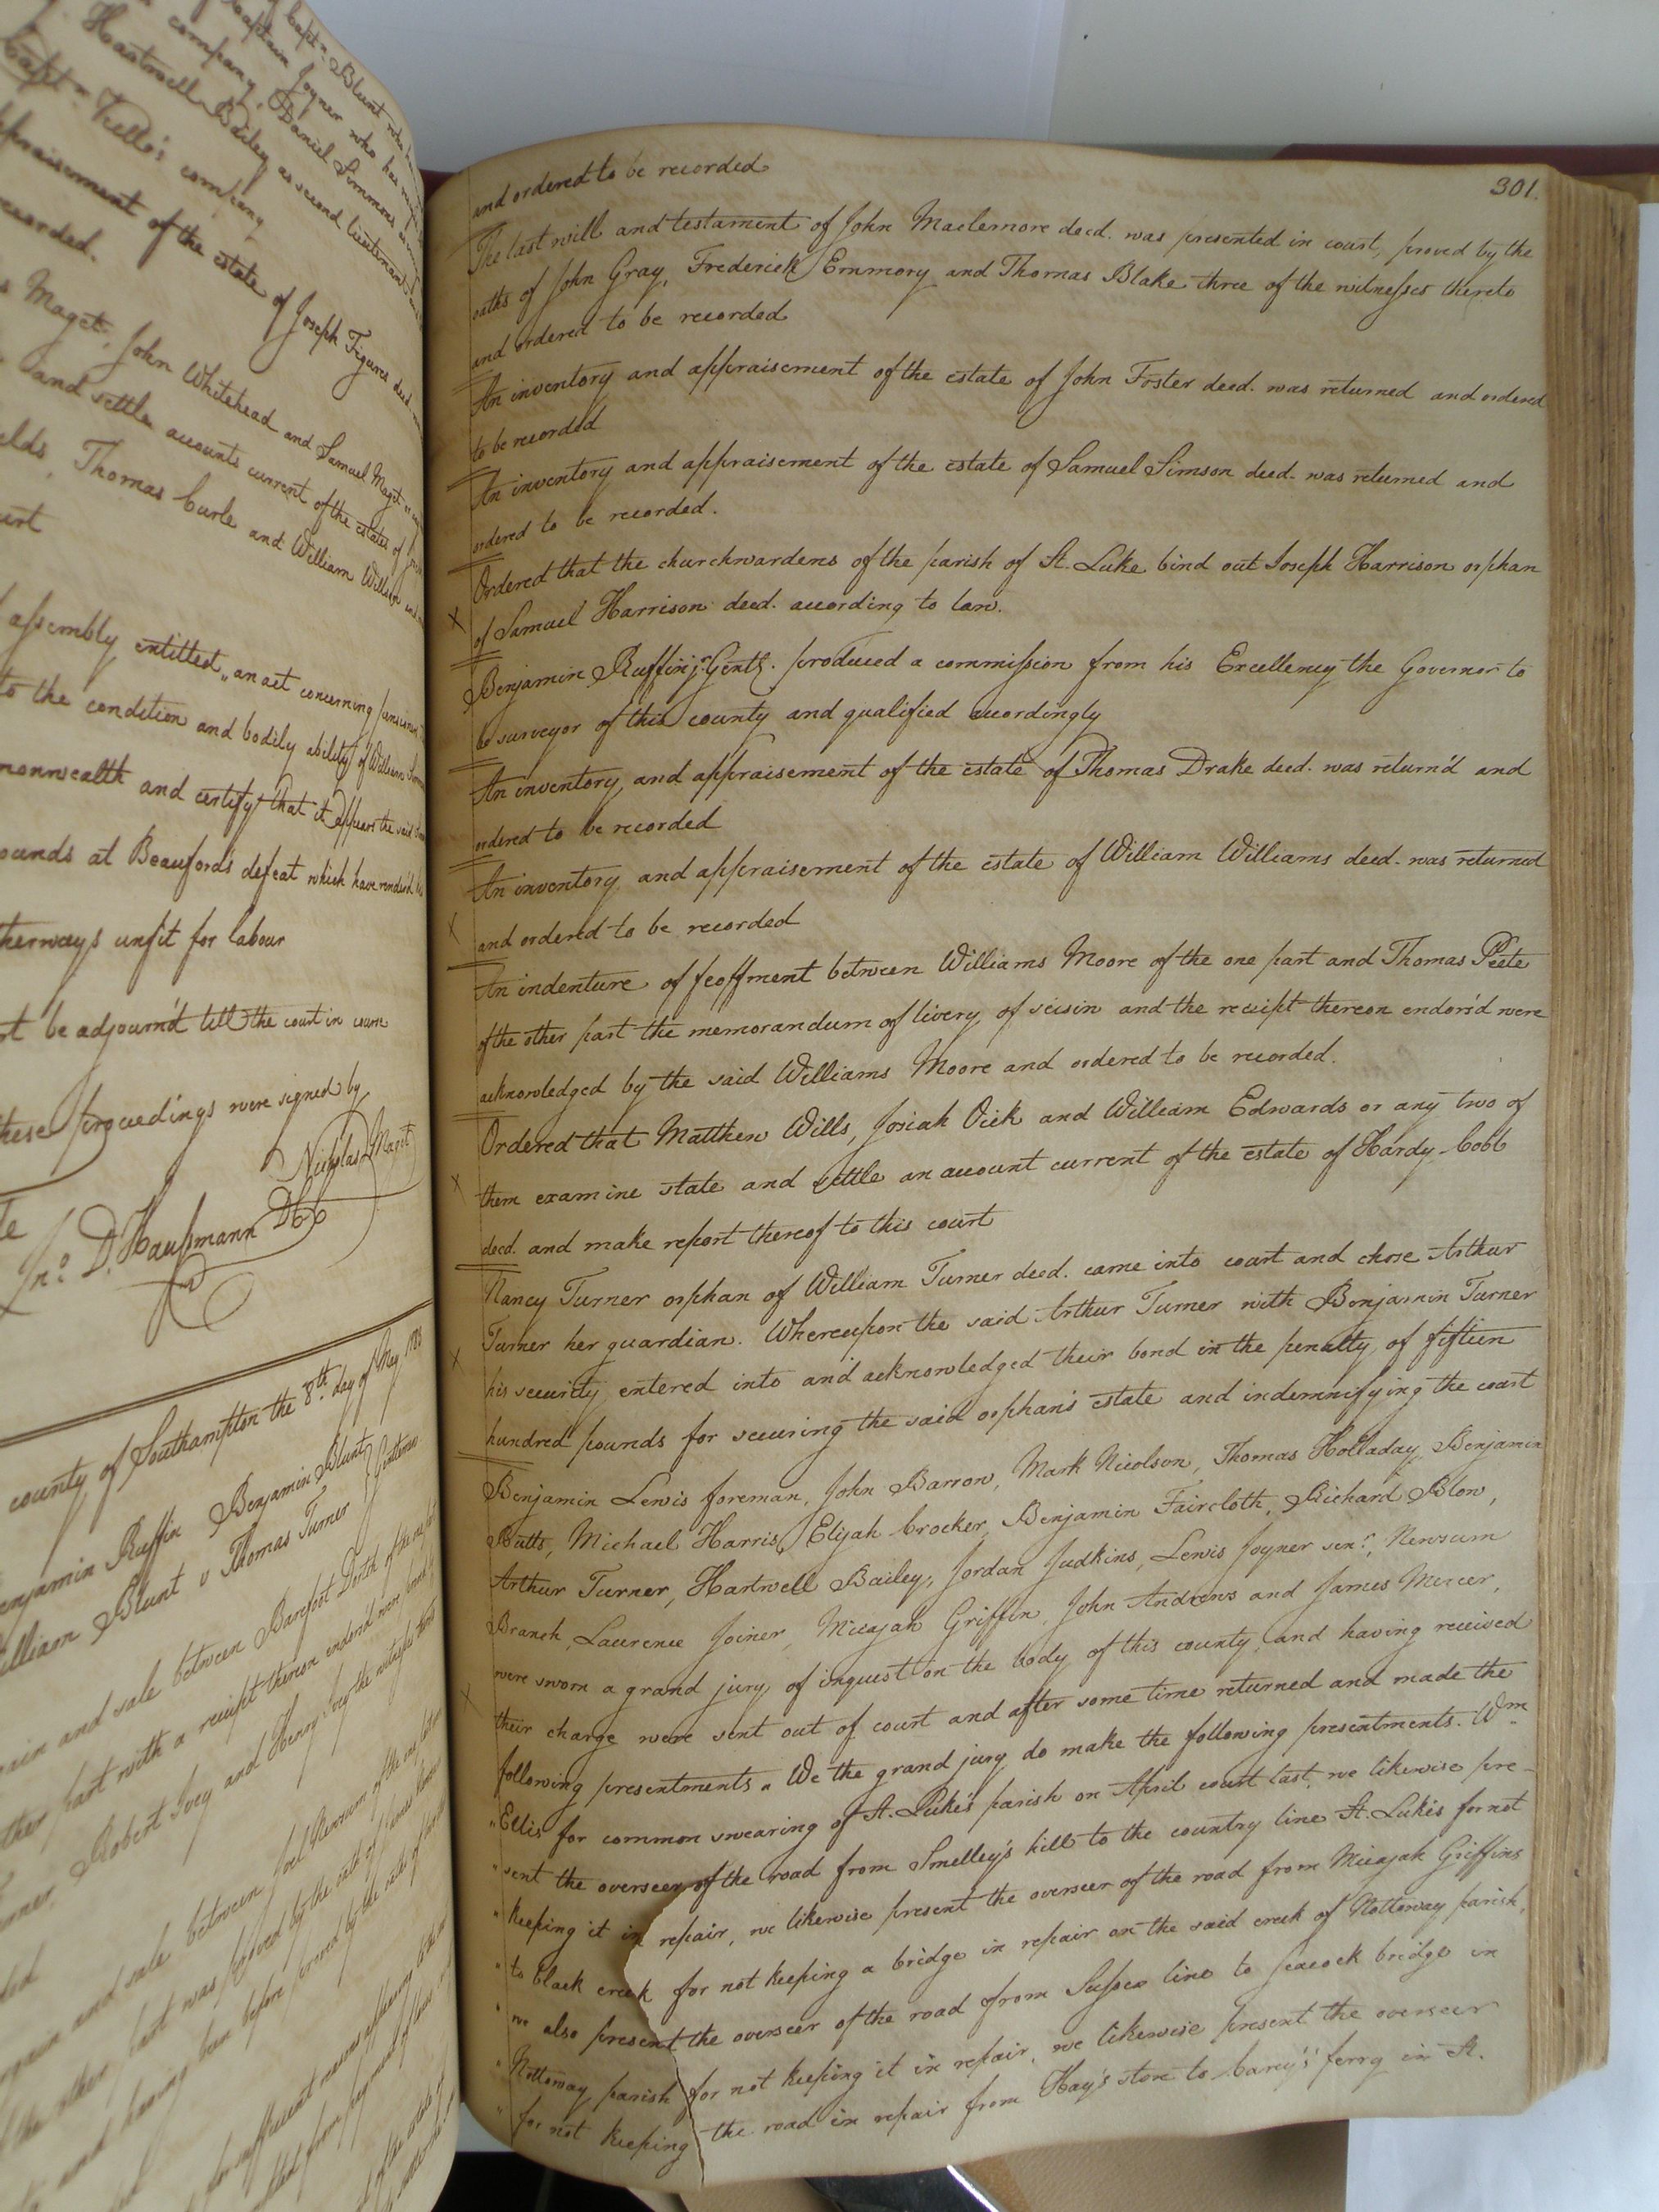 Capt.n Blunt who
Captain Joyner who has
company, Daniel Simmons
Hartwell Bailey as second lieutenant
Capt.n Kello's company
appraisement of the estate of Joseph Figures deed
recorded.
Maget, John Whitehead and Samuel Maget
and settle accounts current of the estates of
Thomas Curle and William
assembly entitled "an act concerning
to the condition and bodily ability of William
and certify that it appears the said
at Beauford's defeat which have
unfit for labour
be adjourn'd till the court in course
these proceedings were signed by
Nicholas Maget
Jn.o D. Haussmann DCC
county of Southampton the 8th. day of May 178
Benjamin Ruffin Benjamin Blunt
William Blunt & Thomas Turner } Gentlemen
and sale between Barefoot
part with a receipt thereon endors'd were
Robert Ivey and Henry Ivey
and sale between Joel Newsum of the
part was proved by the oath of
and having been before proved by the oaths of
sufficient reasons appearing to the
301.
and ordered to be recorded
The last will and testament of John Maclemore deed. was presented in court, proved by the
oaths of John Gray, Frederick Emmory and Thomas Blake three of the witnesses thereto
and ordered to be recorded
An inventory and appraisement of the estate of John Foster deed. was returned and ordered
to be recorded
An inventory and appraisement of the estate of Samuel Simson deed. was returned and
ordered to be recorded.
Ordered that the churchwardens of the parish of St. Luke bind out Joseph Harrison orphan
X of Samuel Harrison deed. according to law.
Benjamin Ruffin jr. Gentl. produced a commission from his Excellency the Governor to
be surveyor of this county and qualified accordingly
An inventory and appraisement of the estate of Thomas Drake deed. was return'd and
ordered to be recorded
An inventory and appraisement of the estate of William Williams deed. was returned
X and ordered to be recorded
An indenture of feoffment between Williams Moore of the one part and Thomas Peete
of the other part the memorandum of livery of seisin and the receipt thereon endors'd were
acknowledged by the said Williams Moore and ordered to be recorded.
Ordered that Matthew Wills, Josiah Vick and William Edwards or any two of
X them examine state and settle an account current of the estate of Hardy Cobb
deed. and make report thereof to this court
Nancy Turner orphan of William Turner deed. came into court and chose Arthur
Turner her guardian. Whereupon the said Arthur Turner with Benjamin Turner
X his security entered into and acknowledged their bond in the penalty of fifteen
hundred pounds for securing the said orphan's estate and indemnifying the court
Benjamin Lewis foreman, John Barrow, Mark Nicolson, Thomas Holladay, Benjamin
Butts, Michael Harris, Elijah Crocker, Benjamin Faircloth, Richard Blow,
Arthur Turner, Hartwell Bailey, Jordan Judkins, Lewis Joyner senr., Newsum
Branch, Laurence Joiner, Micajah Griffin, John Andrews and James Mercer,
were sworn a grand jury of inquest on the body of this county, and having received
X their charge were sent out of court and after some time returned and made the
following presentments. " We the grand jury do make the following presentments. Wm.
" Ellis for common swearing of St. Luke's parish on April court last, we likewise pre-
" sent the overseer of the road from Smelley's hill to the country line St. Luke's for not
" keeping it in repair, we likewise present the overseer of the road from Micajah Griffins
" to black creek for not keeping a bridge in repair on the said creek of Nottoway parish,
" we also present the overseer of the road from Sussex line to peacock bridge in
" Nottoway parish for not keeping it in repair, we likewise present the overseer
" for not keeping the road in repair from Hay's store to Carey's ferry in St.